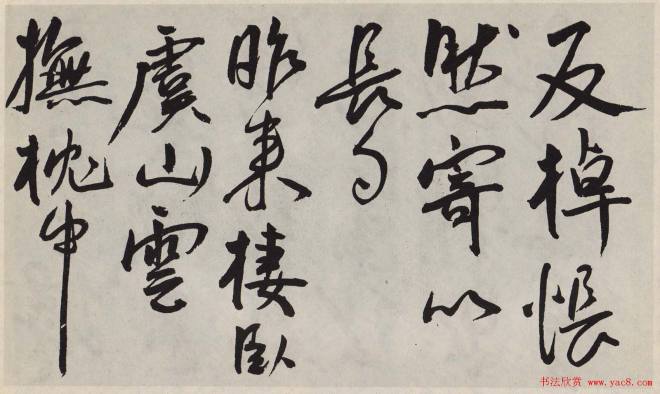 反棹悵
然寄以
長句
昨來棲臥
虞山雲
撫枕中
书法欣赏 www.yac8.com